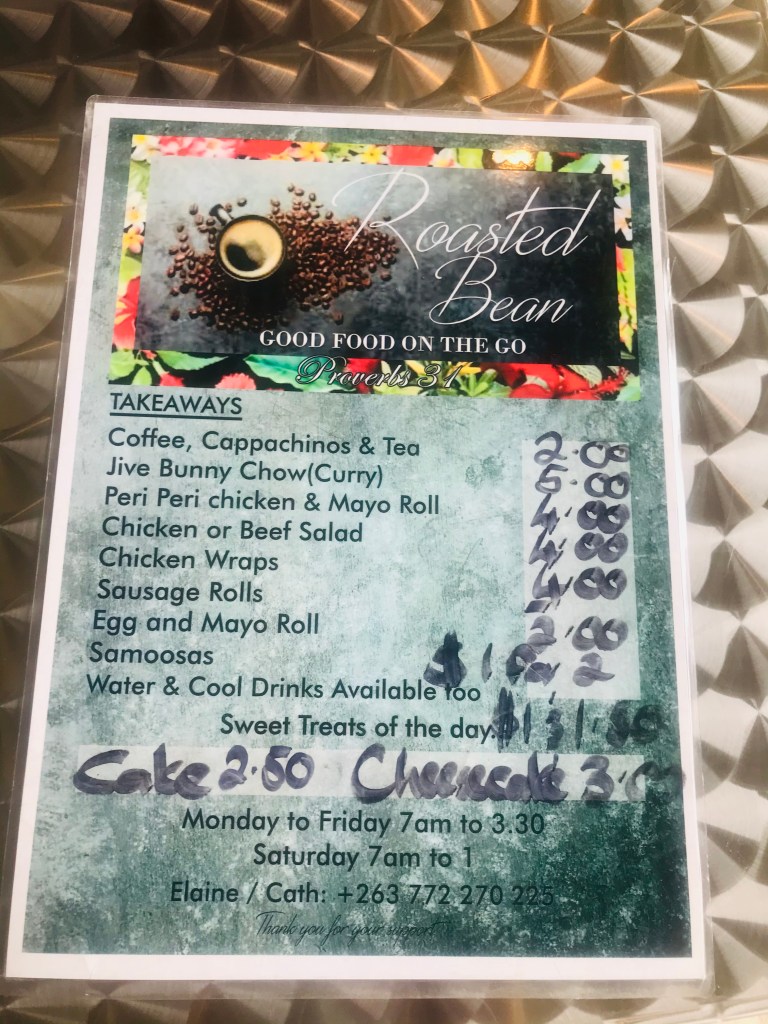 Roasted
Bean
GOOD FOOD ON THE GO
Proverbs 31
TAKEAWAYS
Coffee, Cappachinos & Tea 2.00
Jive Bunny Chow(Curry) 5.00
Peri Peri chicken & Mayo Roll 4.00
Chicken or Beef Salad 4.00
Chicken Wraps 4.00
Sausage Rolls
Egg and Mayo Roll 2.00
Samoosas $1 for 2
Water & Cool Drinks Available too
Sweet Treats of the day.
Cake 2.50 Cheesecake 3.00
Monday to Friday 7am to 3.30
Saturday 7am to 1
Elaine / Cath: +263 772 270 225
Thank you for your support